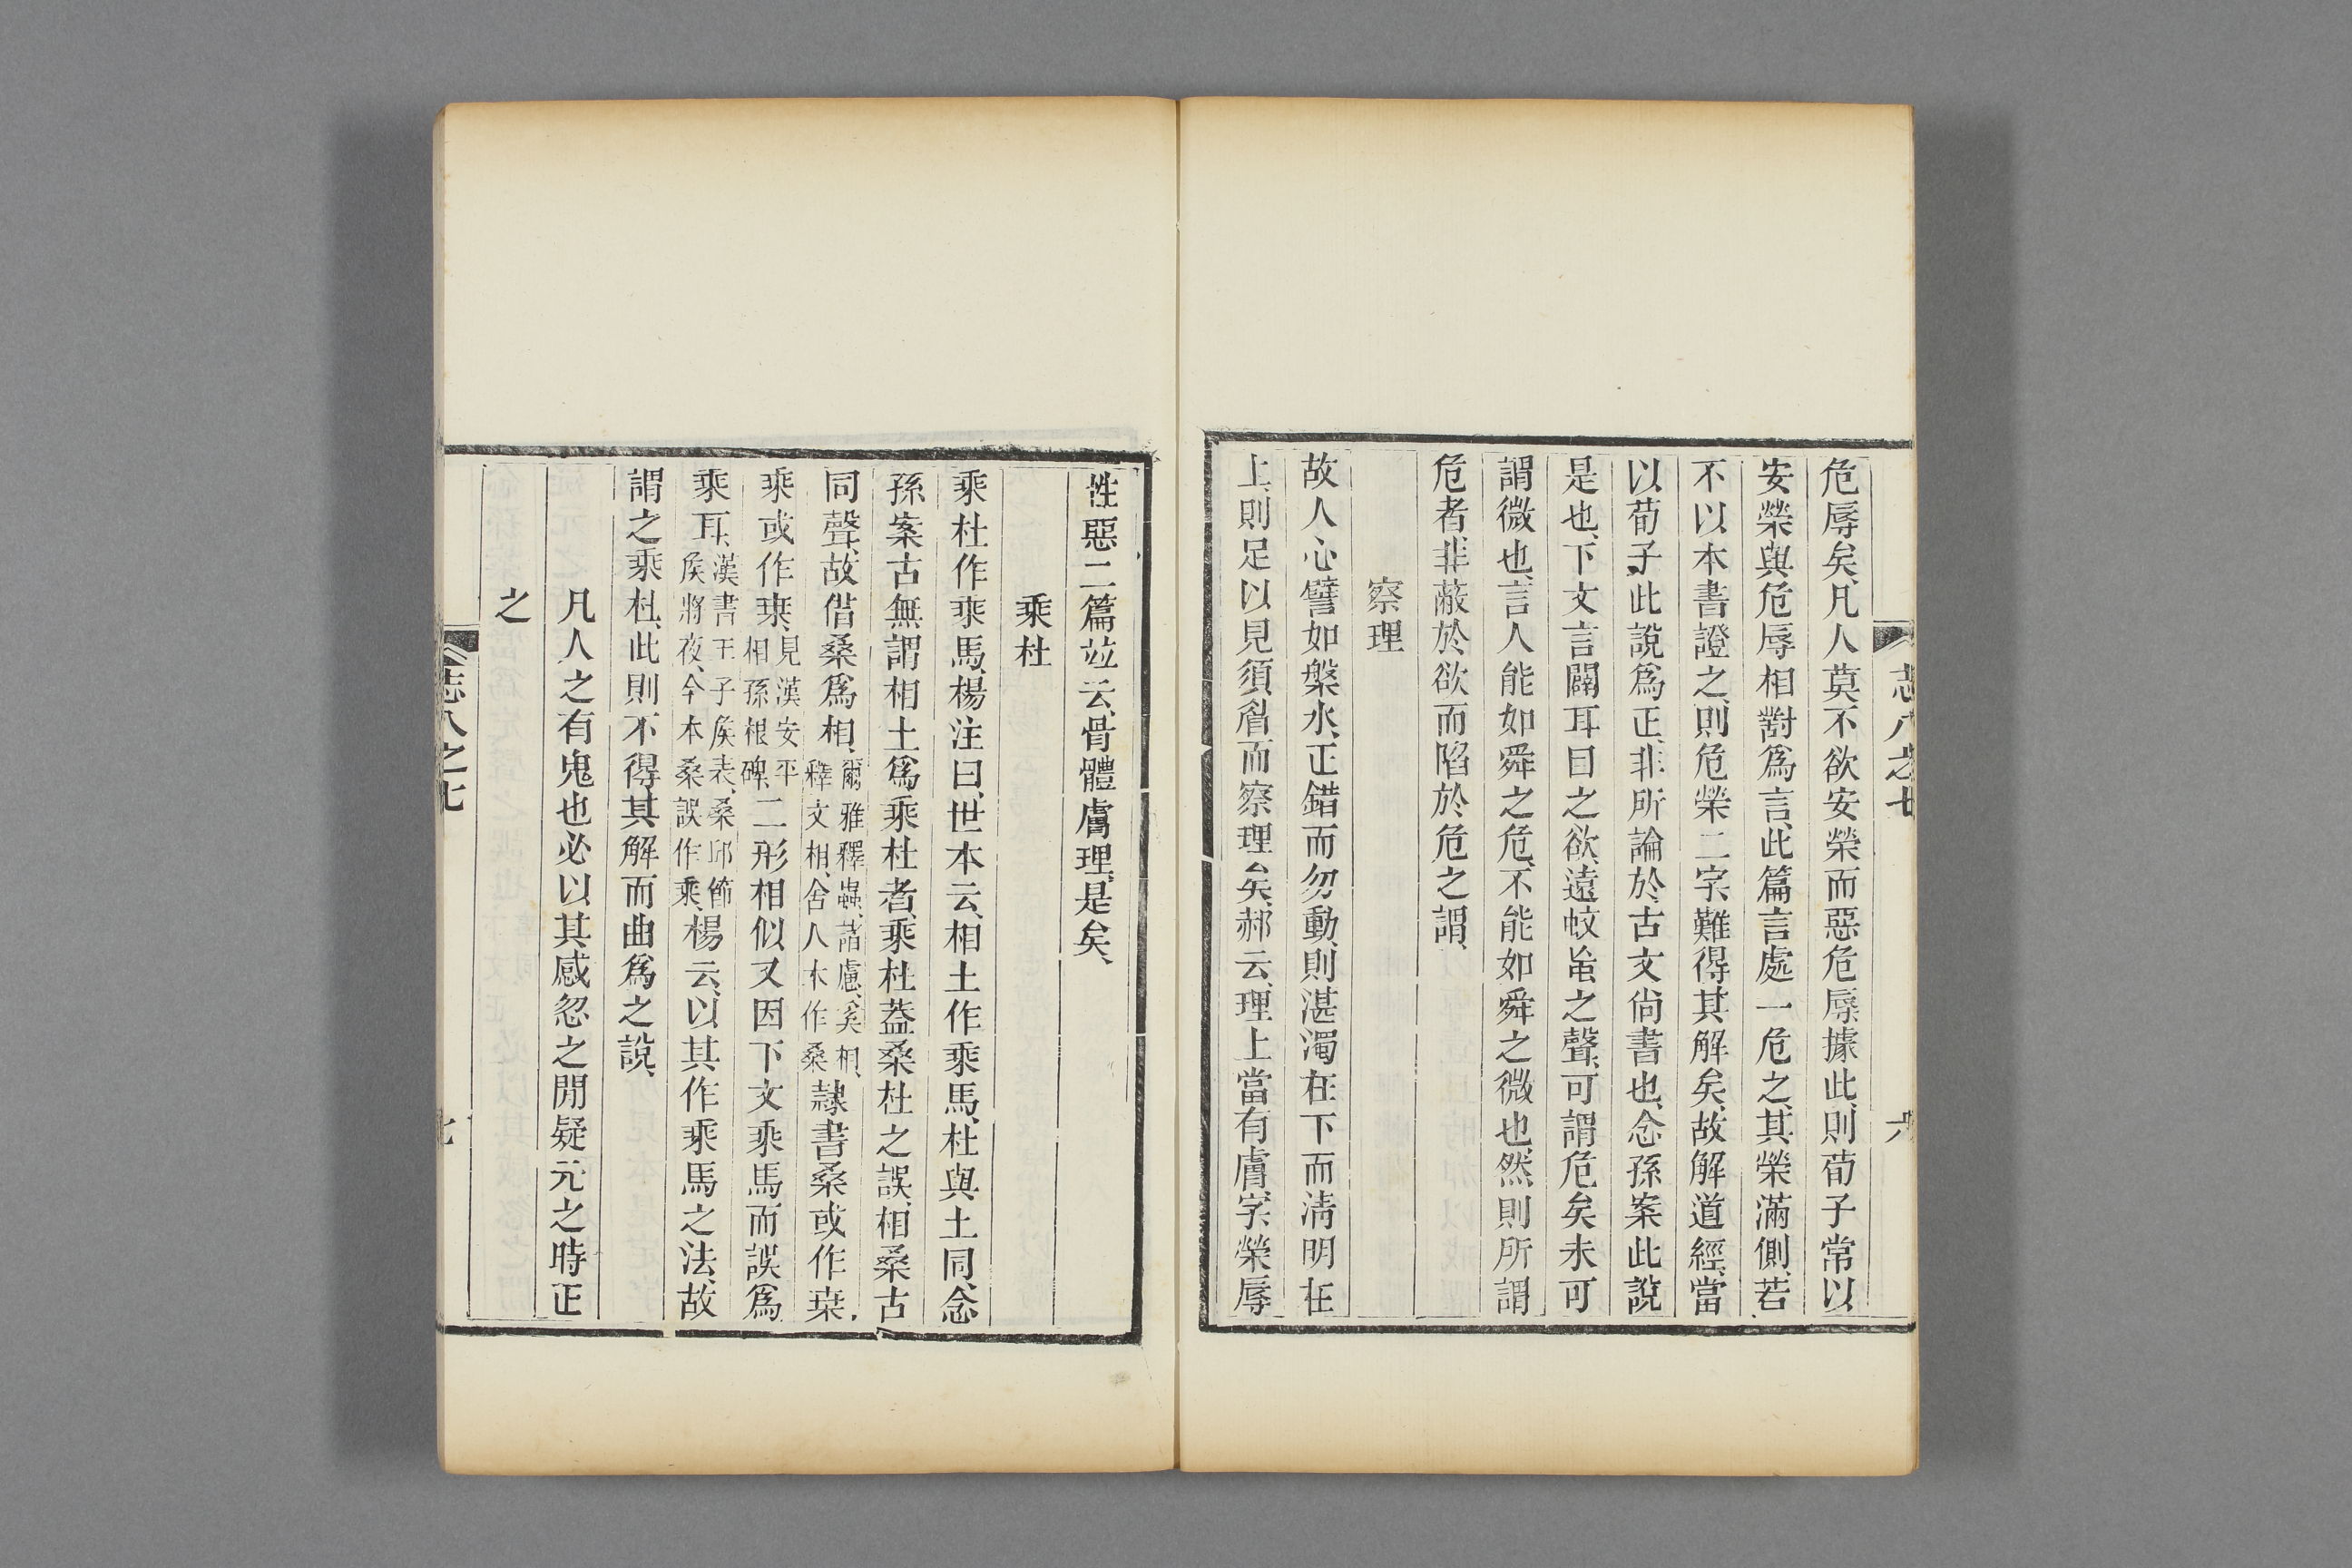 志八之七
六
危辱矣、凡人莫不欲安榮而惡危辱、據此、則荀子常以
安榮與危辱相對爲言、此篇言處一危之、其榮滿側、若
不以本書證之、則危榮二字、難得其解矣、故解道經、當
以荀子此說爲正、非所論於古文尙書也、念孫案此說
是也、下文言闢耳目之欲、遠蚊䖟之聲、可謂危矣未可
謂微也、言人能如舜之危、不能如舜之微也、然則所謂
危者、非蔽於欲而陷於危之謂、
察理
故人心譬如槃水、正錯而勿動、則湛濁在下而淸明在
上、則足以見須眉而察理矣、郝云、理上當有膚字、榮辱
性惡二篇竝云、骨體膚理、是矣、
乘杜
乘杜作乘馬、楊注曰、世本云、相土作乘馬、杜與土同、念
孫案古無謂相土爲乘杜者、乘杜蓋桑杜之誤、相桑古
同聲、故借桑爲相、爾雅釋蟲、諸慮、奚相、釋文相、舍人本作桑隷書桑或作桒、
乘或作桒、見漢安平相孫根碑、二形相似又因下文乘馬、而誤爲
乘耳、漢書王子矦表、桑邱節矦將夜、今本桑誤作乘、楊云、以其作乘馬之法、故
謂之乘杜、此則不得其解而曲爲之說、
凡人之有鬼也必以其感忽之閒疑元之時正
之
志八之七
七